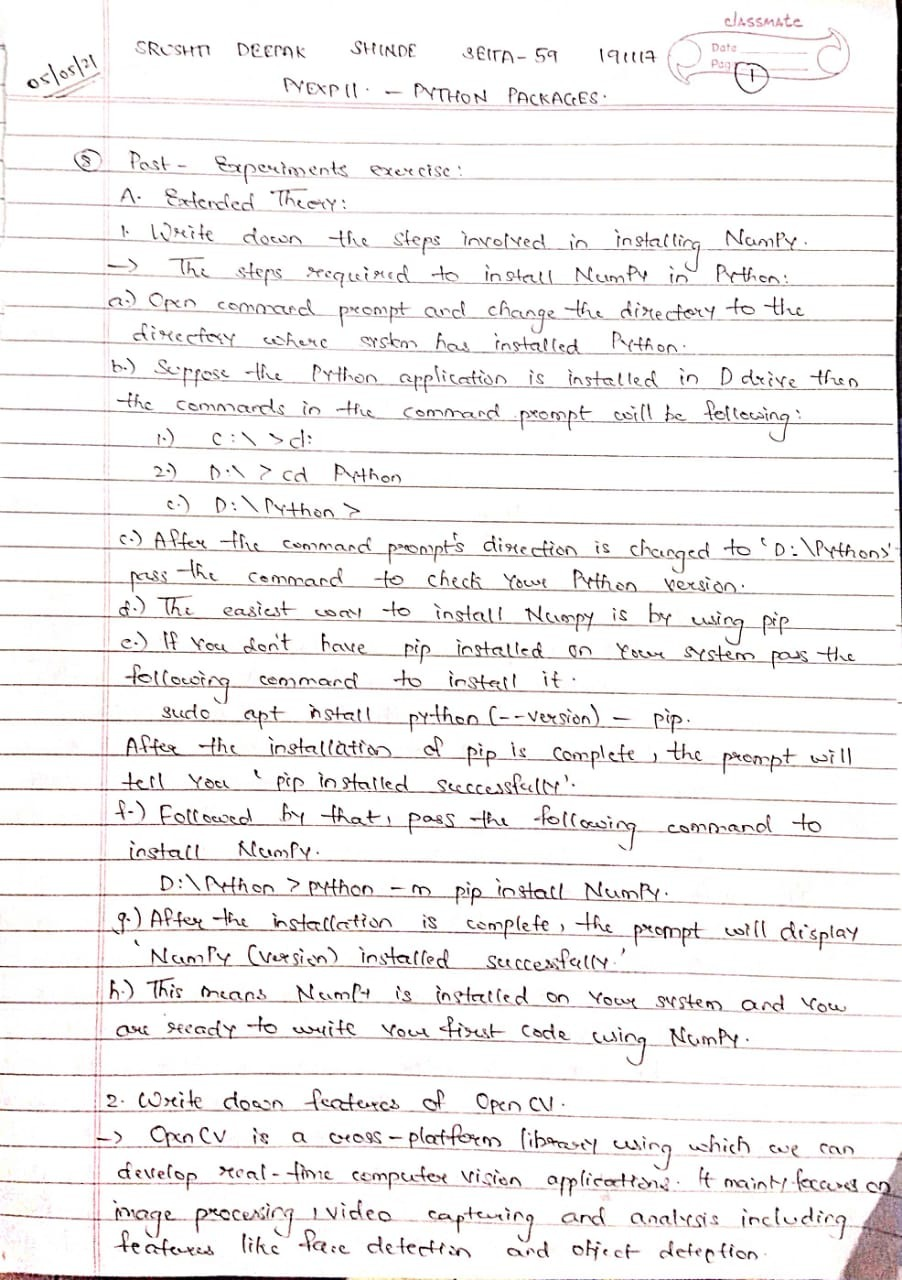 classmate
Date
Page
1
05/05/21
SRUSHTI DEEPAK SHINDE SEITA-59 191117
PYEXP11. - PYTHON PACKAGES.
5 Post-Experiments exercise:
A. Extended Theory:
1. Write down the steps involved in installing NumPy.
-> The steps required to install NumPy in Python:
a.) Open command prompt and change the directory to the
directory where system has installed Python.
b.) Suppose the Python application is installed in D drive then
the commands in the command prompt will be following:
1.) C:\>d:
2.) D:\> cd Python
c.) D:\Python>
c.) After the command prompt's direction is changed to 'D:\Python>'
pass the command to check your Python version.
d.) The easiest way to install Numpy is by using pip
e.) If you don't have pip installed on your system pass the
following command to install it.
sudo apt install python(--version) - pip.
After the installation of pip is complete, the prompt will
tell you 'pip installed successfully'.
f.) Followed by that, pass the following command to
install NumPy.
D:\Python>python -m pip install NumPy.
g.) After the installation is complete, the prompt will display
'NumPy (version) installed successfully.'
h.) This means NumPy is installed on your system and you
are ready to write your first code using NumPy.
2. Write down features of OpenCV.
-> OpenCV is a cross-platform library using which we can
develop real-time computer vision applications. It mainly focuses on
image processing, video capturing and analysis including
features like face detection and object deteption.